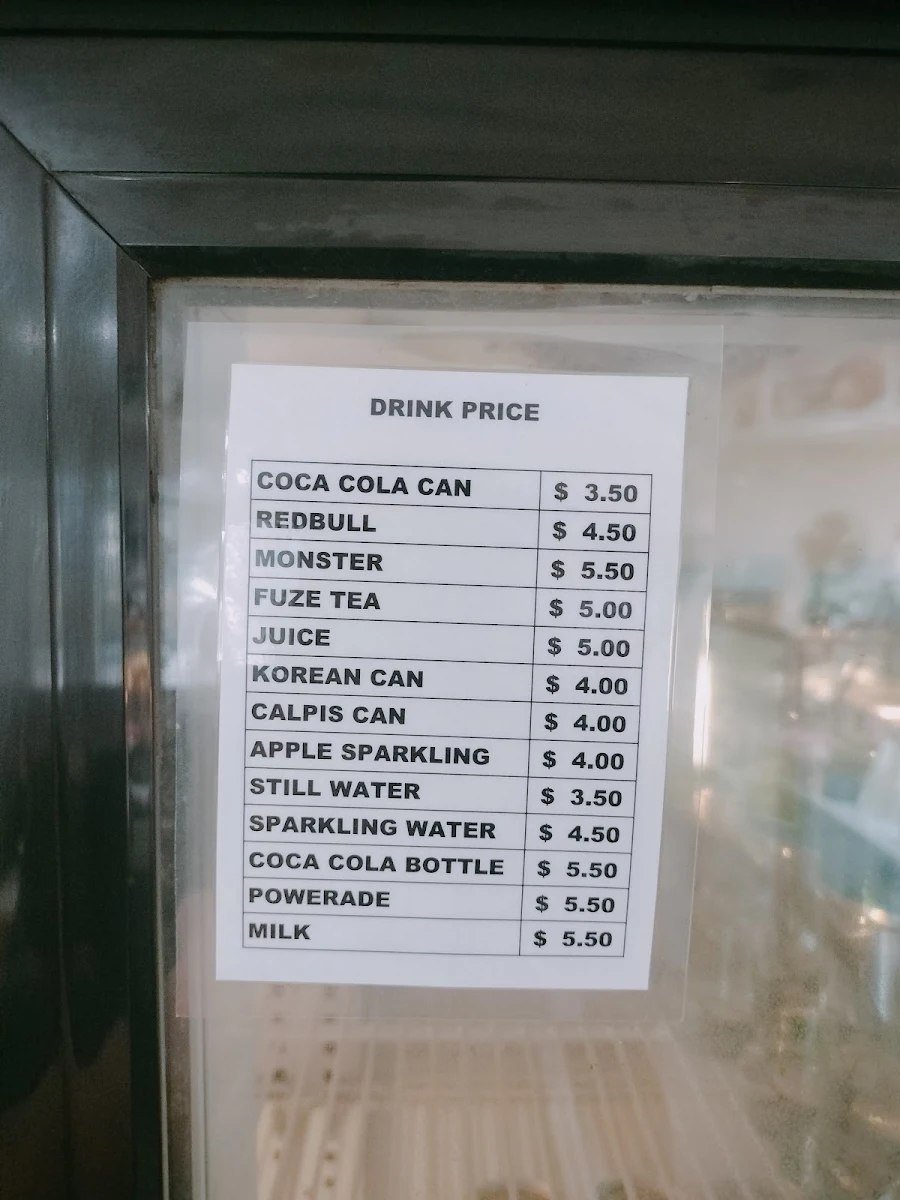 DRINK PRICE
COCA COLA CAN $ 3.50
REDBULL $ 4.50
MONSTER $ 5.50
FUZE TEA $ 5.00
JUICE $ 5.00
KOREAN CAN $ 4.00
CALPIS CAN $ 4.00
APPLE SPARKLING $ 4.00
STILL WATER $ 3.50
SPARKLING WATER $ 4.50
COCA COLA BOTTLE $ 5.50
POWERADE $ 5.50
MILK $ 5.50